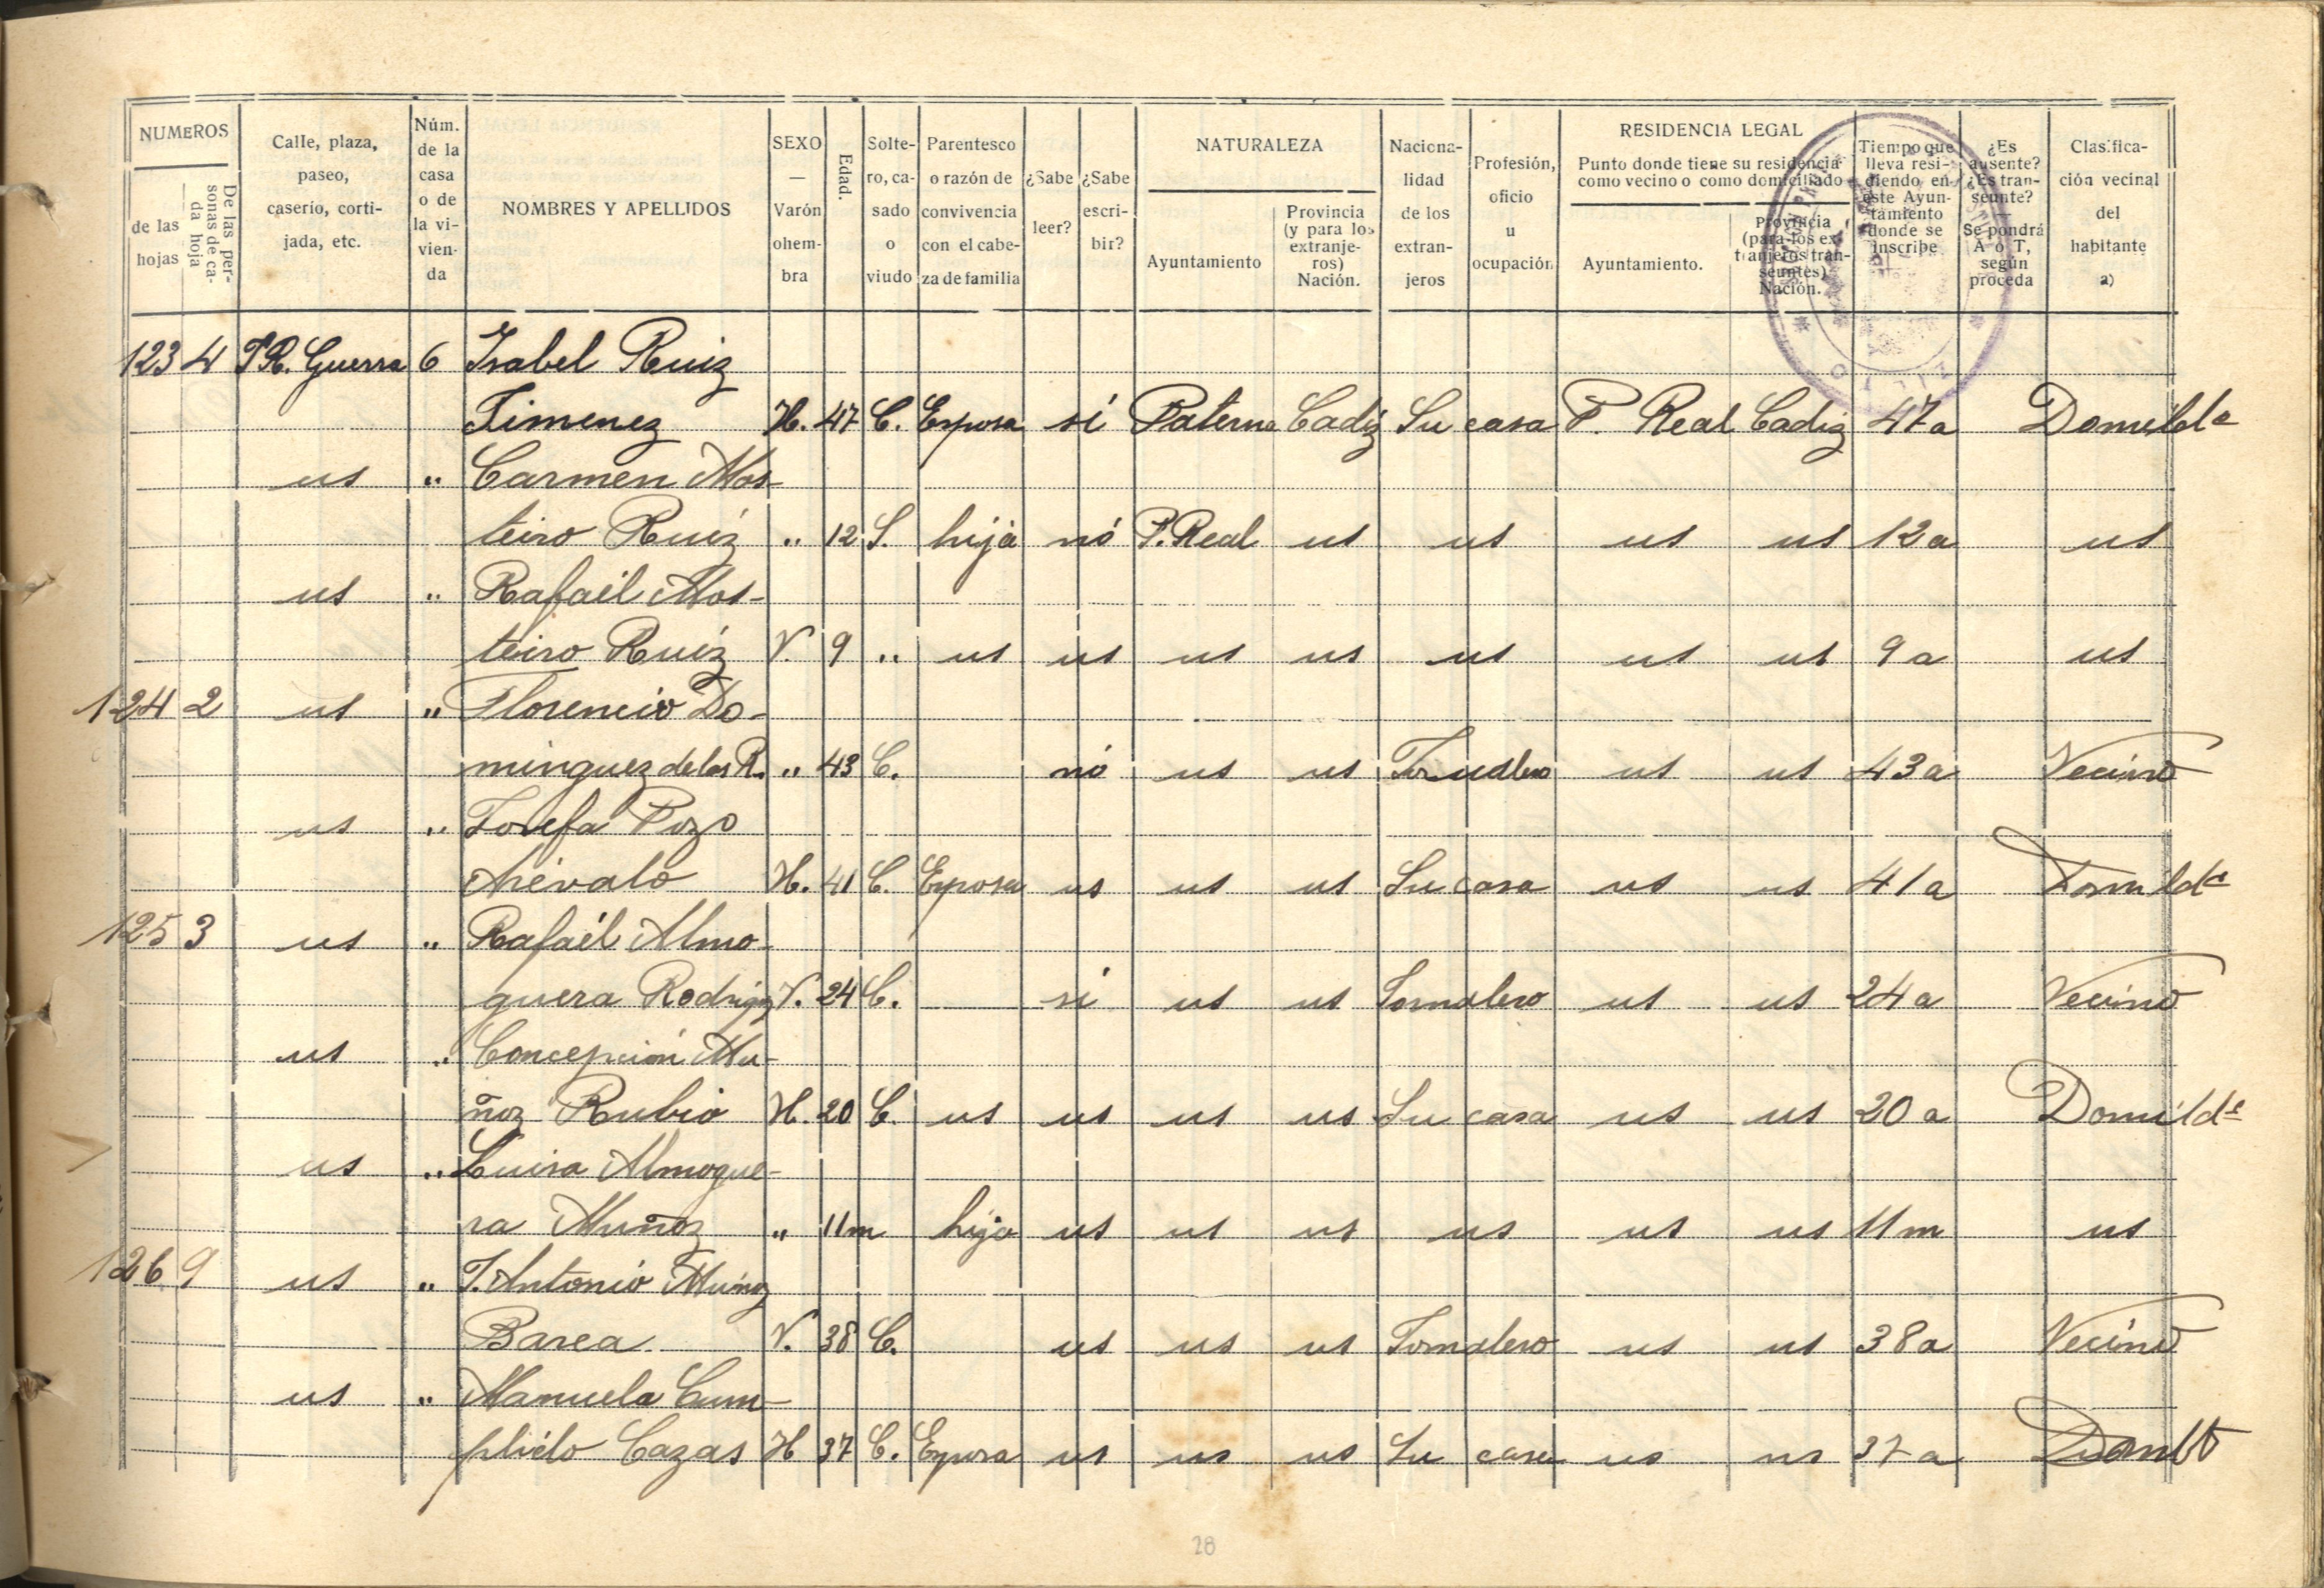 NUMEROS
de las hojas
De las personas de cada hoja
Calle, plaza, paseo, caserío, cortijada, etc.
Núm. de la casa o de la vivienda
NOMBRES Y APELLIDOS
SEXO — Varón ohembra
Edad.
Soltero, casado o viudo
Parentesco o razón de convivencia con el cabeza de familia
¿Sabe leer?
¿Sabe escribir?
NATURALEZA
Ayuntamiento
Provincia (y para los extranjeros) Nación.
Nacionalidad de los extranjeros
Profesión, oficio u ocupación
RESIDENCIA LEGAL
Punto donde tiene su residencia como vecino o como domiciliado
Ayuntamiento.
Provincia (para los extranjeros transeuntes) Nación.
Tiempo que lleva residiendo en este Ayuntamiento donde se inscribe
¿Es ausente? ¿Es transeunte? Se pondrá A o T, según proceda
Clasificación vecinal del habitante a)
123 4 P R. Guerra 6 Isabel Ruiz
Jimenez H. 47 C. Esposa si Paterna Cadiz Su casa P. Real Cadiz 47 a Domilda
us " Carmen Mos-
teiro Ruiz " 12 S. hija nó P. Real us us us us 12 a us
us " Rafaél Mos-
teiro Ruiz V. 9 " us us us us us us us 9 a us
124 2 us " Florencio Do-
minguez de los R. " 43 C. nó us us Jornalero us us 43 a Vecino
us " Josefa Pozo
Arévalo H. 41 C. Esposa us us us Su casa us us 41 a Domilda
125 3 us " Rafaél Almo-
guera Rodrigz V. 24 C. si us us Jornalero us us 24 a Vecino
us " Concepción Mu-
ñoz Rubio H. 20 C. us us us us Su casa us us 20 a Domilda
us " Luisa Almogue-
ra Muñoz " 11 m hija us us us us us us 11 m us
126 9 us " J. Antonio Muñoz
Barea V. 38 C. us us us Jornalero us us 38 a Vecino
us " Manuela Cum-
plido Cazas H 37 C. Esposa us us us Su casa us us 37 a
28